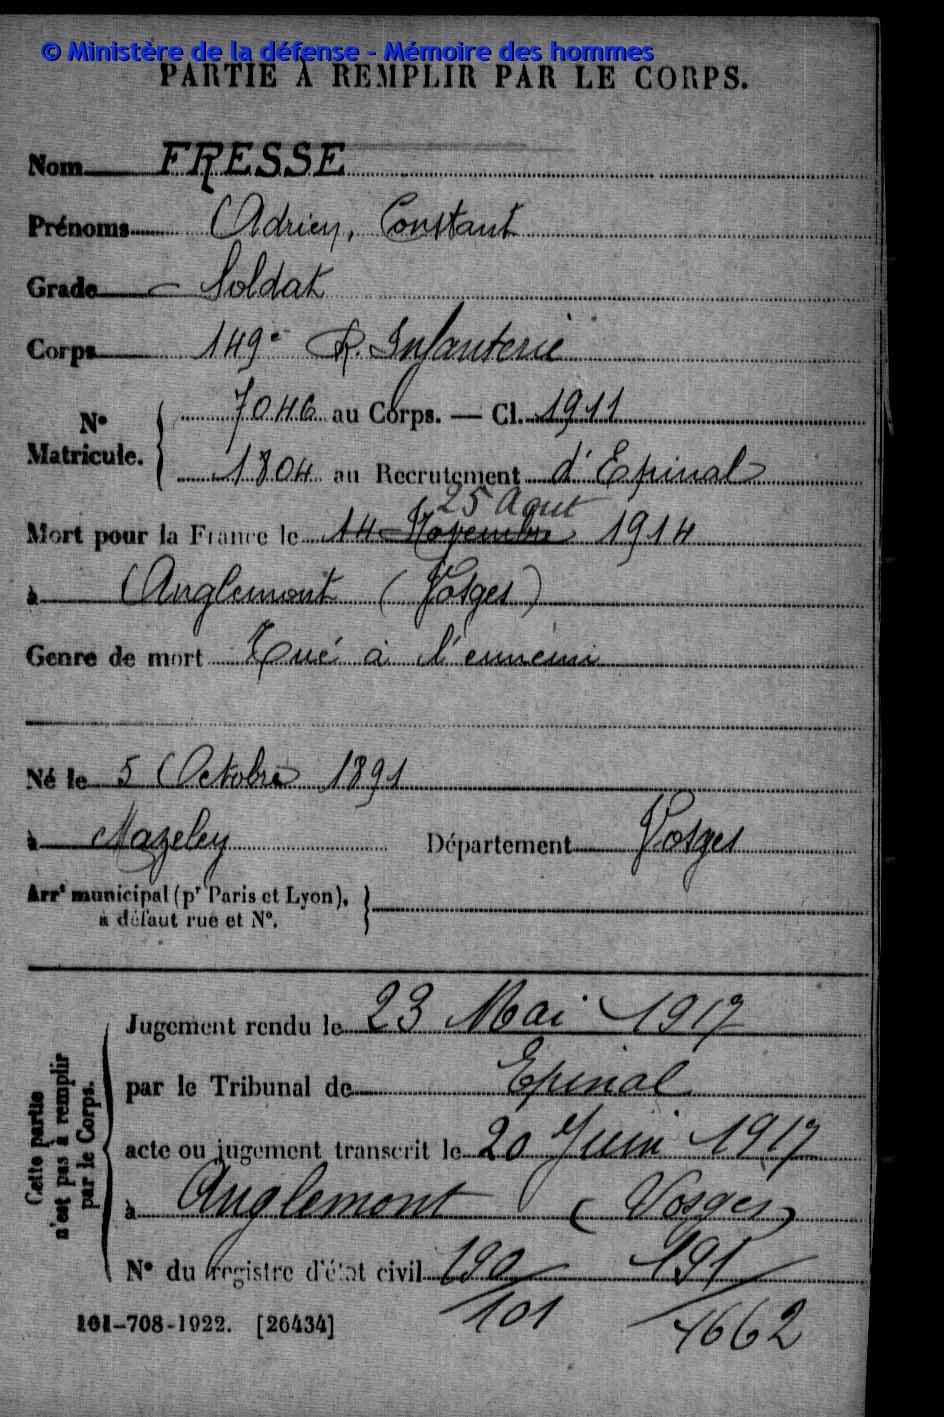 © Ministère de la défense - Mémoire des hommes
PARTIE À REMPLIR PAR LE CORPS.
Nom FRESSE
Prénoms Adrien, Constant
Grade Soldat
Corps 149e R. Infanterie
N° Matricule. 7046 au Corps. — Cl. 1911
1804 au Recrutement d'Epinal
25 Aout
Mort pour la France le 14 Novembre 1914
à Anglemont (Vosges)
Genre de mort Tué à l'ennemi
Né le 5 Octobre 1891
à Mazeley Département Vosges
Arrt municipal (pr Paris et Lyon),
à défaut rue et N°.
Cette partie n'est pas à remplir par le Corps.
Jugement rendu le 23 Mai 1917
par le Tribunal de Epinal
acte ou jugement transcrit le 20 Juin 1917
à Anglemont (Vosges)
N° du registre d'état civil 190/101 191/1662
101-708-1922. [26434]